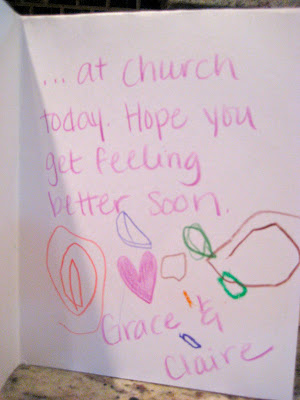 ... at church
today. Hope you
get feeling
better soon.
Grace &
Claire